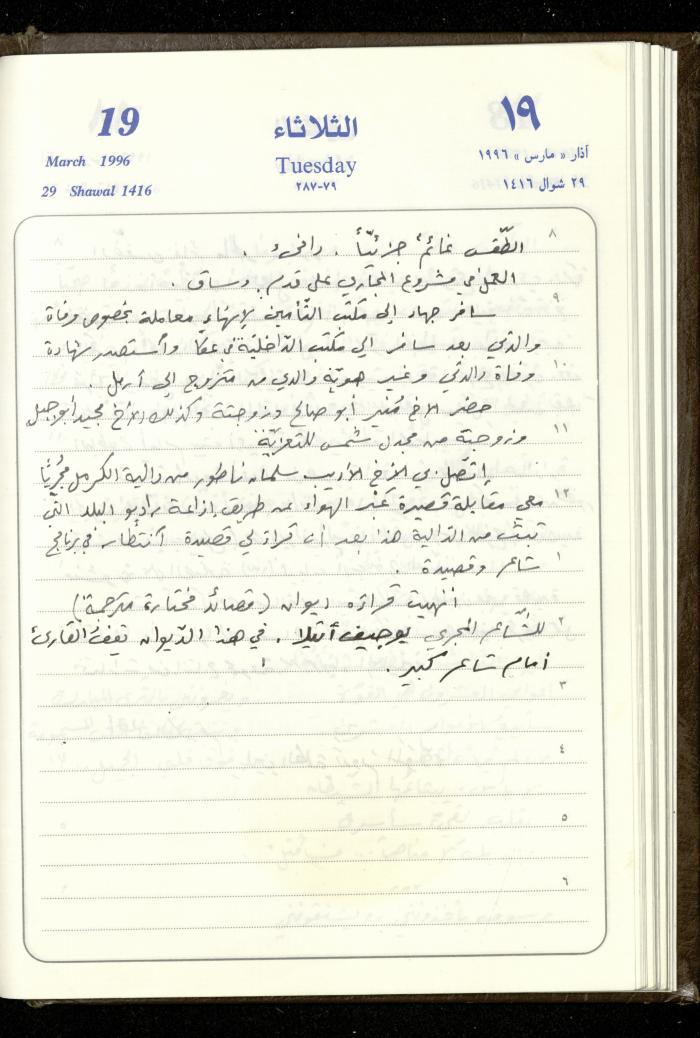 19 الثلاثاء ١٩
March 1996 Tuesday آذار « مارس » ١٩٩٦
29 Shawal 1416 ٧٩-٢٨٧ ٢٩ شوال ١٤١٦
٨ الطّقس غائمٌ جزئيّاً . دافىء .
العمل في مشروع المجاري على قدم وساق .
٩ سافر جهاد إلى مكتب التّأمين لإنهاء معاملة بخصوص وفاة
والدتي بعد سافر إلى مكتب الدّاخليّة في عكّا وأستصدر شهادة
١٠ وفاة والدتي وغيّر هويّة والدي من متزوج إلى أرمل .
حضر الأخ مُنير أبو صالح وزوجته وكذلك الأخ مجيد أبو جبل
١١ وزوجته من مجدل شمس للتعزيّة
إتّصل بي الأخ الأديب سلمان ناطور من دالية الكرمل مُجريًا
١٢ معي مقابلة قصيرة عَبْر الهواء عن طريق إذاعة راديو البلد الّتي
تبث من الدّالية هذا بعد أن قرأ لي قصيدة أنتظار في برنامج
١ شاعر وقصيدة .
أنهيت قراءة ديوان (قصائد مختارة مترجمة)
٢ للشّاعر المجري يوجيف أتيلا . في هذا الدّيوان تقفُ القارئ
أمام شاعر كبير .
٣
٤
٥
٦